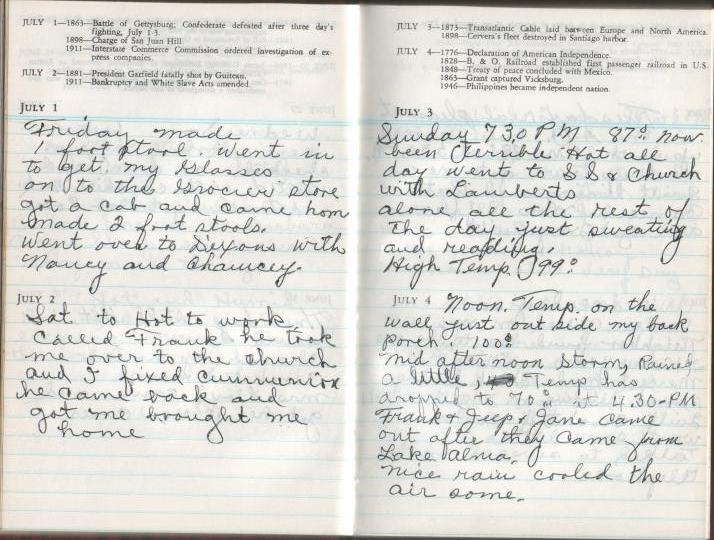 JULY 1—1863—Battle of Gettysburg; Confederate defeated after three day's
fighting, July 1-3.
1898—Charge of San Juan Hill.
1911—Interstate Commerce Commission ordered investigation of ex-
press companies.
JULY 2—1881—President Garfield fatally shot by Guiteau.
1911—Bankruptcy and White Slave Acts amended.
JULY 1
Friday made
1 foot stool. Went in
to get my Glasses
on to the Grocier store
got a cab and came hom
made 2 foot stools.
Went over to Dixons with
Nancy and Chauncey.
JULY 2
Sat to Hot to work
Called Frank he took
me over to the church
and I fixed cummunion
he came back and
got me brought me
home
JULY 3—1873—Transatlantic Cable laid between Europe and North America.
1898—Cervera's fleet destroyed in Santiago harbor.
JULY 4—1776—Declaration of American Independence.
1828—B. & O. Railroad established first passenger railroad in U.S.
1848—Treaty of peace concluded with Mexico.
1863—Grant captured Vicksburg.
1946—Philippines became independent nation.
JULY 3
Sunday 730 PM 87° now
been Terrible Hot all
day went to S S & Church
with Lamberts
alone all the rest of
the day just sweating
and reading.
High Temp. 99°
JULY 4 Noon. Temp. on the
wall just out side my back
Porch. 100°
mid after noon Storm, Rained
a little, Temp has
dropped to 70° at 4.30-PM
Frank & Jeep & Jane came
out after they came from
Lake Alma.
nice rain cooled the
air some.